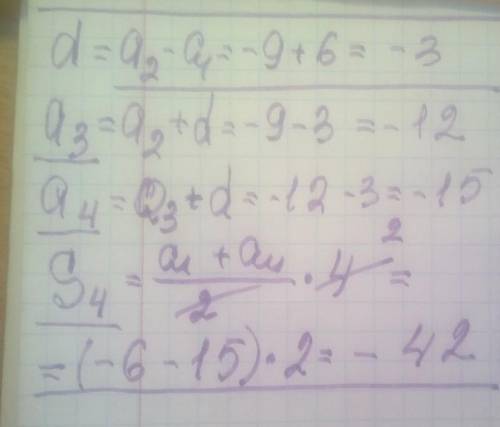 d = a₂ - a₁ = -9 + 6 = -3
a₃ = a₂ + d = -9 - 3 = -12
a₄ = a₃ + d = -12 - 3 = -15
S₄ = (a₁ + a₄)/2 · 4 2 =
= (-6 - 15) · 2 = -42